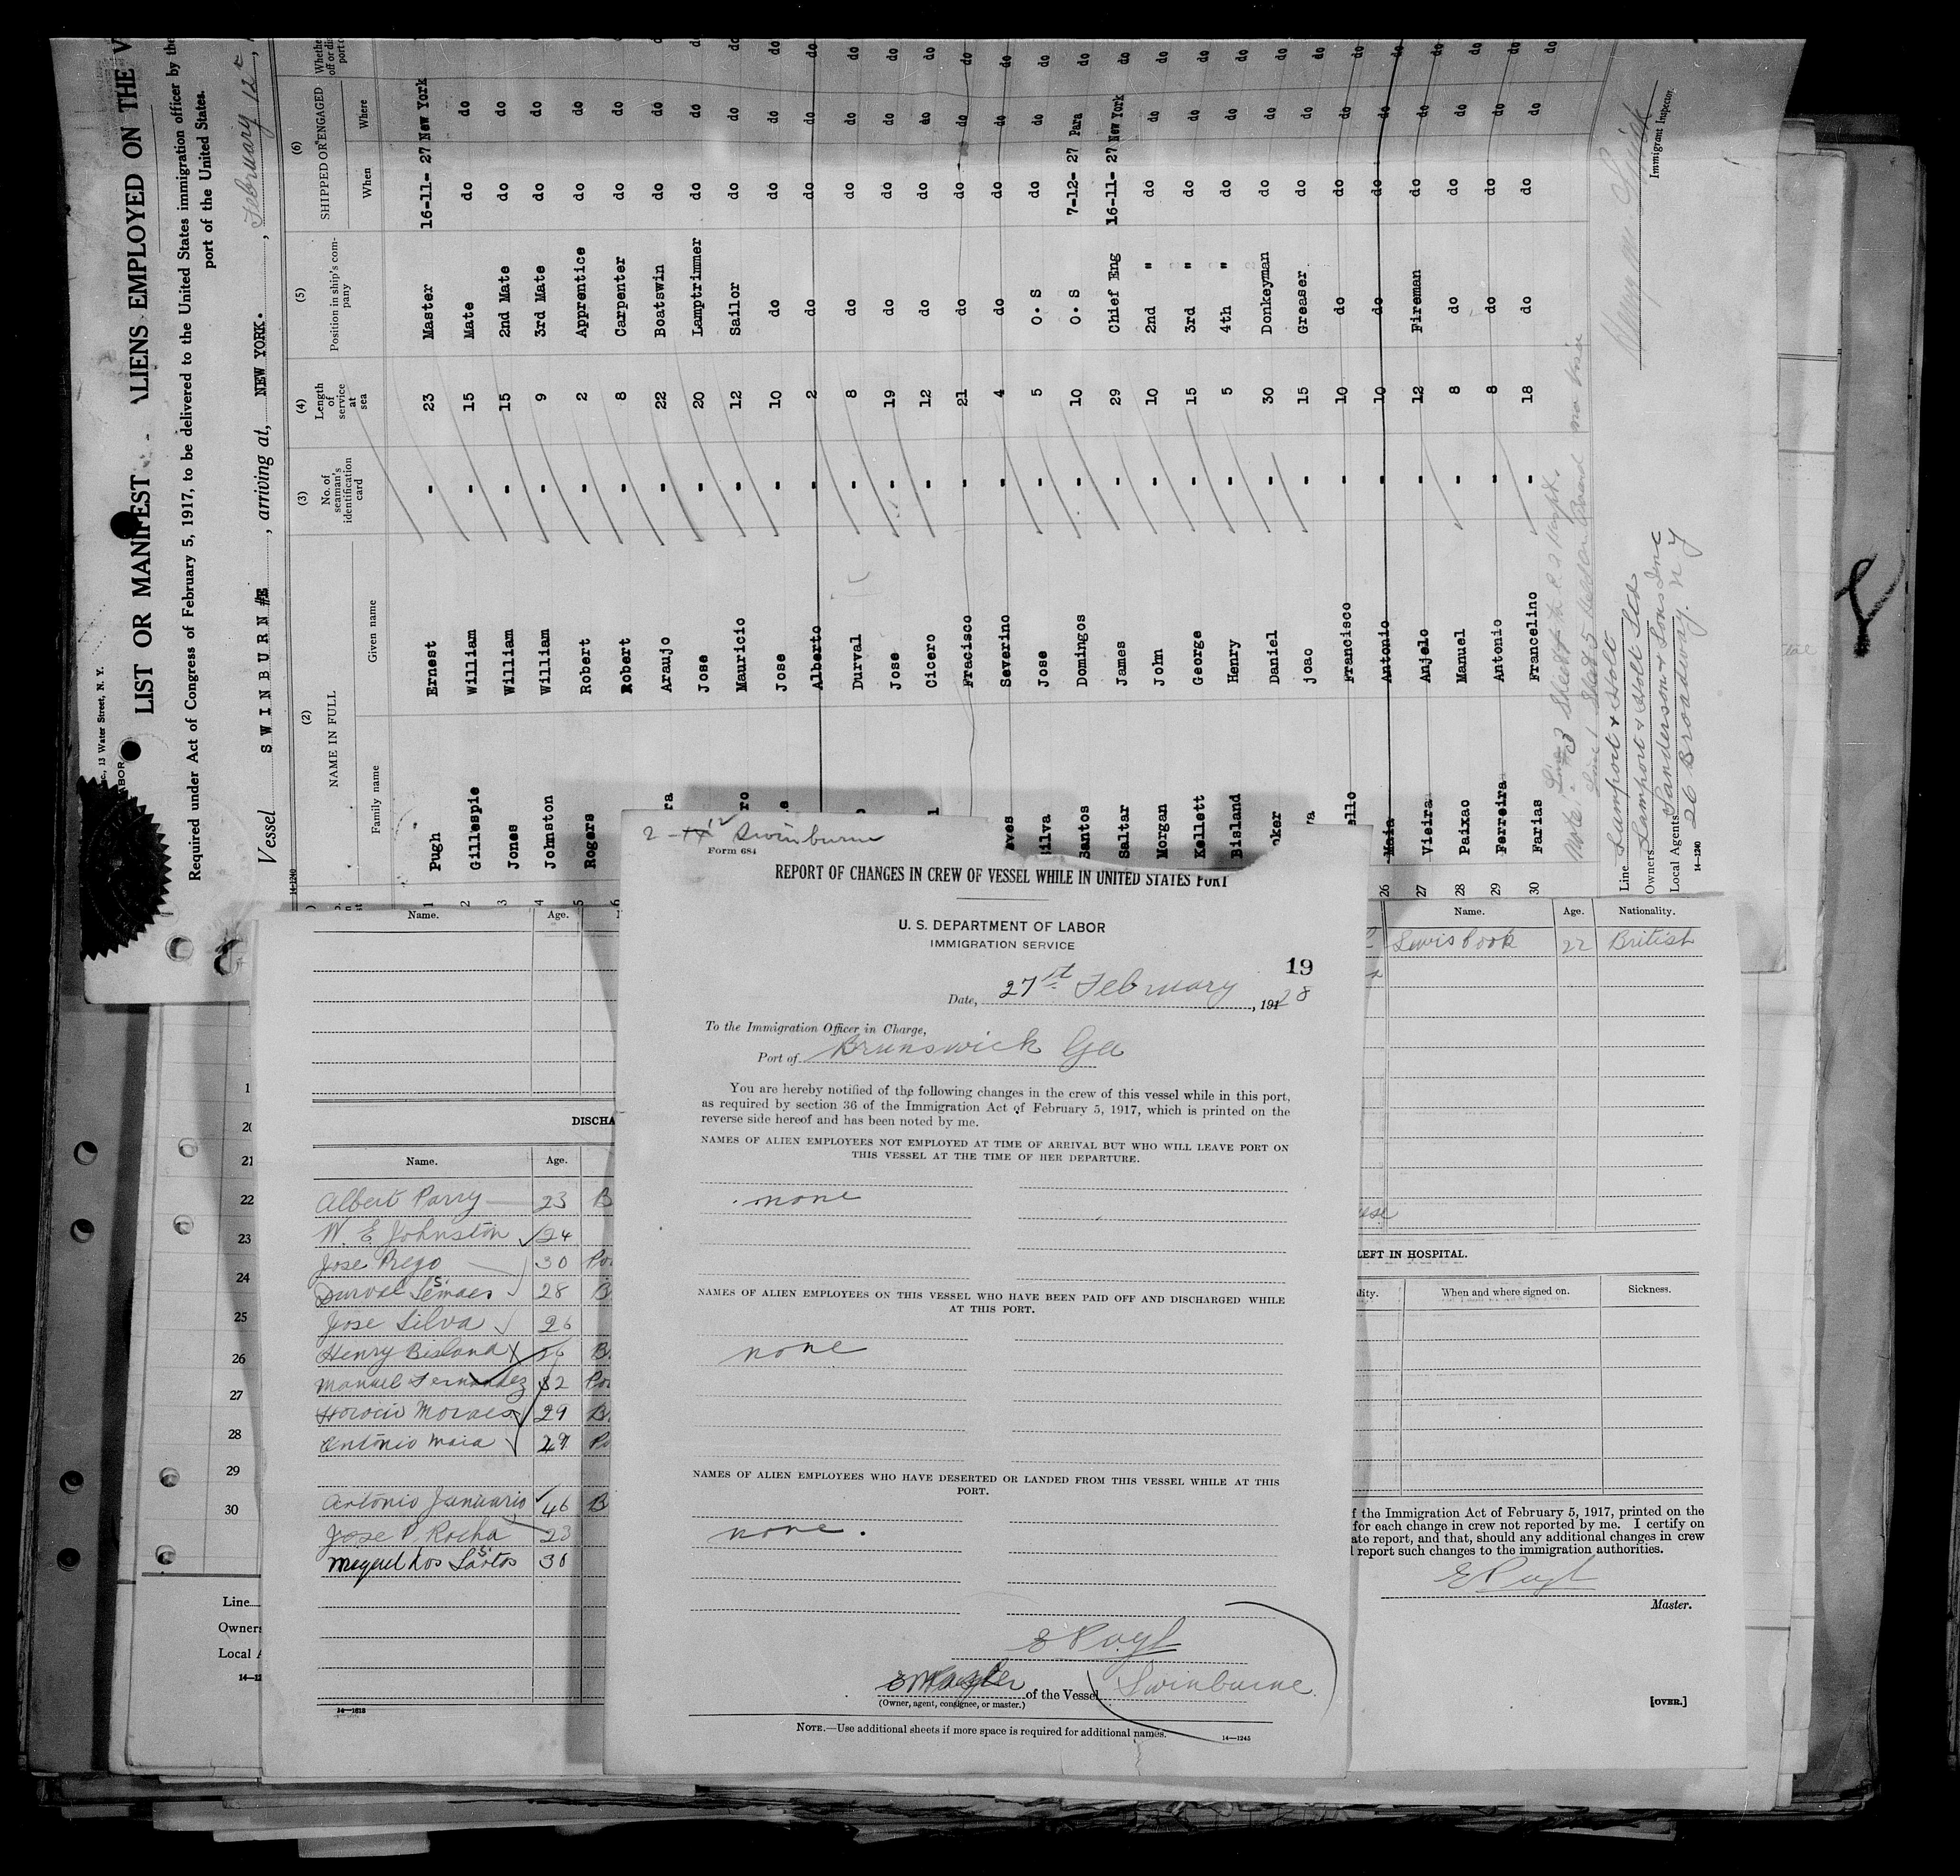 2-12 Swinburne
Form 684
REPORT OF CHANGES IN CREW OF VESSEL WHILE IN UNITED STATES PORT
U. S. DEPARTMENT OF LABOR
IMMIGRATION SERVICE
19
Date, 27st February, 191 28
To the Immigration Officer in Charge,
Port of Brunswick Ga
You are hereby notified of the following changes in the crew of this vessel while in this port,
as required by section 36 of the Immigration Act of February 5, 1917, which is printed on the
reverse side hereof and has been noted by me.
NAMES OF ALIEN EMPLOYEES NOT EMPLOYED AT TIME OF ARRIVAL BUT WHO WILL LEAVE PORT ON
THIS VESSEL AT THE TIME OF HER DEPARTURE.
none
NAMES OF ALIEN EMPLOYEES ON THIS VESSEL WHO HAVE BEEN PAID OFF AND DISCHARGED WHILE
AT THIS PORT.
none
NAMES OF ALIEN EMPLOYEES WHO HAVE DESERTED OR LANDED FROM THIS VESSEL WHILE AT THIS
PORT.
none.
E Pugh
Master of the Vessel Swinburne
(Owner, agent, consignee, or master.)
NOTE.—Use additional sheets if more space is required for additional names.
14—1245
Name. Age.
DISCHA
Name. Age.
Albert Parry 23 B
W. E. Johnston 24
Jose Rego 30 Po
Durval Semoes 28 B
Jose Silva 26
Henry Bisland 26 B
Manuel Fernandez 32 Po
Horacio Moraes 29 B
Antonio Maia 29 Po
Antonio Januario 46 B
Jose P. Rocha 23
Miguel dos Santos 30
14—1618
Name. Age. Nationality.
Lewis Cook 22 British
LEFT IN HOSPITAL.
lity. When and where signed on. Sickness.
f the Immigration Act of February 5, 1917, printed on the
for each change in crew not reported by me. I certify on
ate report, and that, should any additional changes in crew
l report such changes to the immigration authorities.
E Pugh
Master.
[OVER.]
20
21
22
23
24
25
26
27
28
29
30
Line
Owners
Local A
14—12
c., 13 Water Street, N. Y.
LIST OR MANIFEST ALIENS EMPLOYED ON THE V
Required under Act of Congress of February 5, 1917, to be delivered to the United States immigration officer by the
port of the United States.
Vessel SWINBURNE, arriving at, NEW YORK., February 12
14-1240
(2) (3) (4) (5) (6)
NAME IN FULL No. of seaman's identification card Length of service at sea Position in ship's company SHIPPED OR ENGAGED
Family name Given name When Where
1 Pugh Ernest - 23 Master 16-11-27 New York
2 Gillespie William - 15 Mate do do do
3 Jones William - 15 2nd Mate do do do
4 Johnston William - 9 3rd Mate do do do
5 Rogers Robert - 2 Apprentice do do do
6 Robert - 8 Carpenter do do do
ra Araujo - 22 Boatswin do do do
Jose - 20 Lamptrimmer do do do
ro Mauricio - 12 Sailor do do do
e Jose - 10 do do do do
Alberto - 2 do do do do
Durval - 8 do do do do
Jose - 19 do do do do
l Cicero - 12 do do do do
Fracisco - 21 do do do do
eves Severino - 4 do do do do
Silva Jose - 5 O. S do do do
Santos Domingos - 10 O. S 7-12-27 Para do
Saltar James - 29 Chief Eng 16-11-27 New York do
Morgan John - 10 2nd " do do do
Kellett George - 15 3rd " do do do
Bisland Henry - 5 4th " do do do
oker Daniel - 30 Donkeyman do do do
va joao - 15 Greaser do do do
ello Francisco - 10 do do do do
26 Maia Antonio - 10 do do do do
27 Vieira Anjelo - 12 Fireman do do do
28 Paixao Manuel - 8 do do do do
29 Ferreira Antonio - 8 do do do do
30 Farias Francelino - 18 do do do do
Line Lamport & Holt
Owners Lamport & Holt Ltd
Local Agents Sanderson & Sons Inc
26 Broadway. N Y
14-1240
Immigrant Inspector.